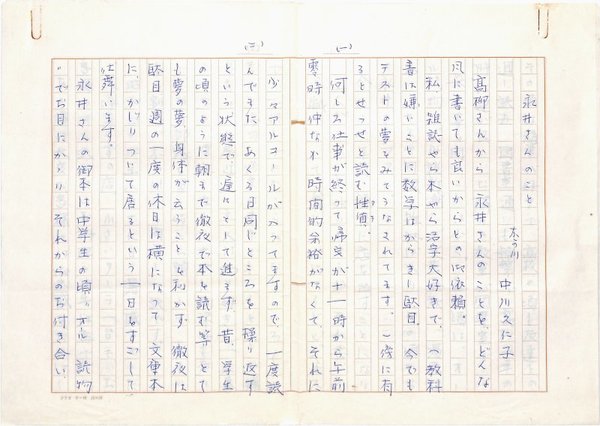 (一)
永井さんのこと
本の川 中川久仁子
高柳さんから 永井さんのことを どんな
風に書いても良いからとの 御依頼。
私、雑誌やら本やら活字大好きで、(教科
書は嫌い)ことに数学はからきし駄目、今でも
テストの夢をみてうなされてます。一度に有
るとせっせと読む性質。
何しろ仕事が終って帰るが十一時から午前
零時、仲々 時間的余裕がなくて、それに
(二)
少々アルコールが入ってますので 一度読
んでもまた あくる日同じところを 繰り返す
という状態で、遅々として進まず。昔、学生
の頃のように朝まで徹夜で本を読む等 とて
も夢の夢、身体が云うことを利かず 徹夜は
駄目、週の一度の休日は横になって 文庫本
に、かじりついて居るという 一日をすごして
仕舞います。
永井さんの御本は中学生の頃、オール読物
でお目にかかり それからのお付き合い。